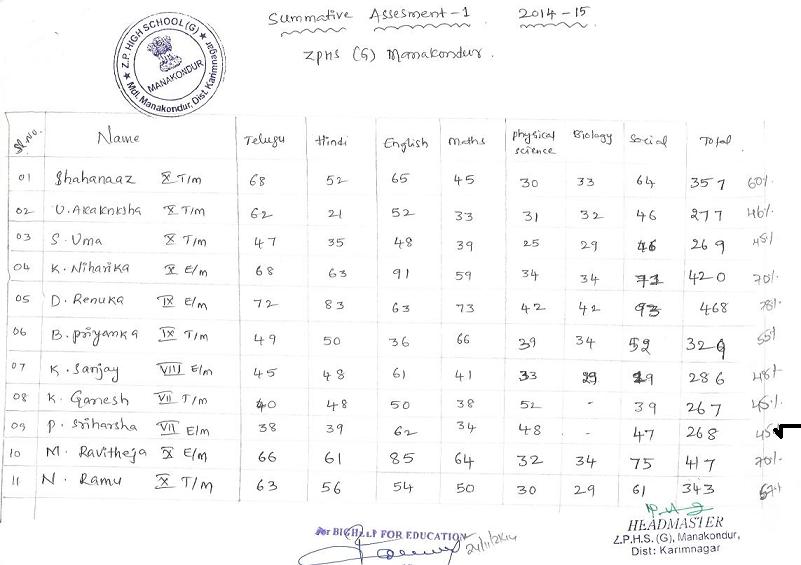 Summative Assesment-1 2014-15
ZPHS (G) Manakondur.
Z.P. HIGH SCHOOL (G)
MANAKONDUR
Mdl. Manakondur, Dist. Karimnagar
Sl.No. Name Telugu Hindi English Maths physical science Biology Social Total
01 Shahanaaz X T/m 68 52 65 45 30 33 64 357 60%
02 U. Akaknksha X T/m 62 21 52 33 31 32 46 277 46%
03 S. Uma X T/m 47 35 48 39 25 29 46 269 45%
04 K. Niharika X E/m 68 63 91 59 34 34 71 420 70%
05 D. Renuka IX E/m 72 83 63 73 42 42 93 468 78%
06 B. priyanka IX T/m 49 50 36 66 39 34 52 326 55%
07 K. Sanjay VIII E/m 45 48 61 41 33 29 29 286 48%
08 K. Ganesh VII T/m 40 48 50 38 52 - 39 267 45%
09 P. Sriharsha VII E/m 38 39 62 34 48 - 47 268 45
10 M. Ravitheja X E/m 66 61 85 64 32 34 75 417 70%
11 N. Ramu X T/m 63 56 54 50 30 29 61 343 57%
For BIGHELP FOR EDUCATION
HEADMASTER
Z.P.H.S. (G), Manakondur,
Dist: Karimnagar